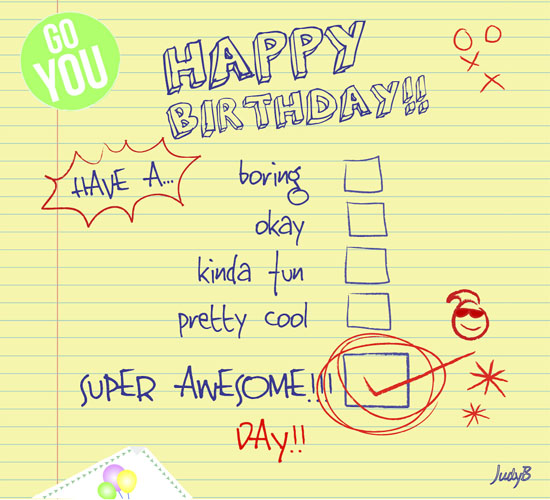 GO
YOU
HAPPY
BIRTHDAY!!
HAVE A...
boring
okay
kinda fun
pretty cool
SUPER AWESOME!!!
DAY!!
JudyB